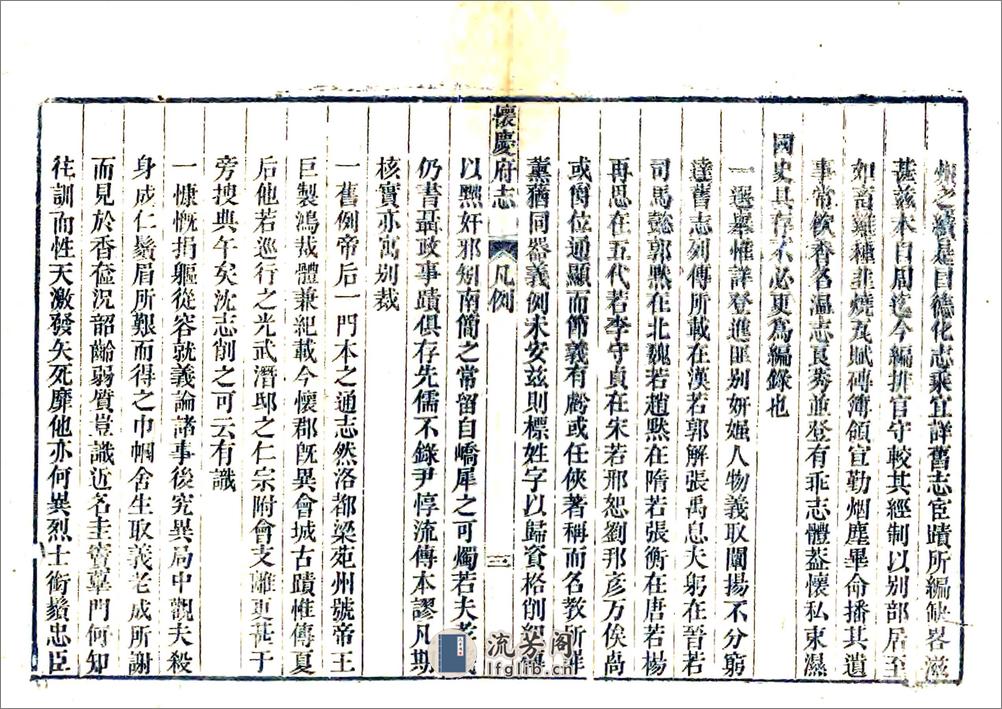 州之績是曰德化志乘宜詳舊志宦蹟所編缺畧滋
甚兹本自周迄今編排官守較其經制以別部居至
如畜雞種韭燒瓦賦磚簿領宣勤烟塵畢命播其遺
事常飲香名溫志良莠並登有乖志體蓋懷私東濕
國史具存不必更為編錄也
一選舉惟詳登進匪别妍媸人物義取闡揚不分窮
達舊志列傳所載在漢若郭解張禹息夫躬在晉若
司馬懿郭默在北魏若趙黙在隋若張衡在唐若楊
再思在五代若李守貞在宋若邢恕劉邦彦万俟卨
或爵位通顯而節義有虧或任俠著稱而名教所
薰蕕同器義例未安兹則標姓字以歸資格削
以黙奸邪 南簡之常留自嶠犀之可燭若夫
仍書聶政事蹟俱存先儒不錄尹惇流傳本謬凡期
核實亦寓别裁
懷慶府志
凡例
三
一舊例帝后一門本之通志然洛都梁苑州號帝王
巨製鴻裁體兼紀載今懷郡旣異會城古蹟惟傳夏
后他若巡行之光武潛邸之仁宗附會支離更甚于
旁搜典午矣沈志削之可云有識
一慷慨捐軀從容就義論諸事後究異局中觀夫殺
身成仁鬚眉所艱而得之巾幗舍生取義老成所謝
而見於香奩況韶齡弱質豈識近名圭竇蓽門何知
往訓而性天激發矢死靡他亦何異烈士銜鬚忠臣
流芳阁
lfglib.cn